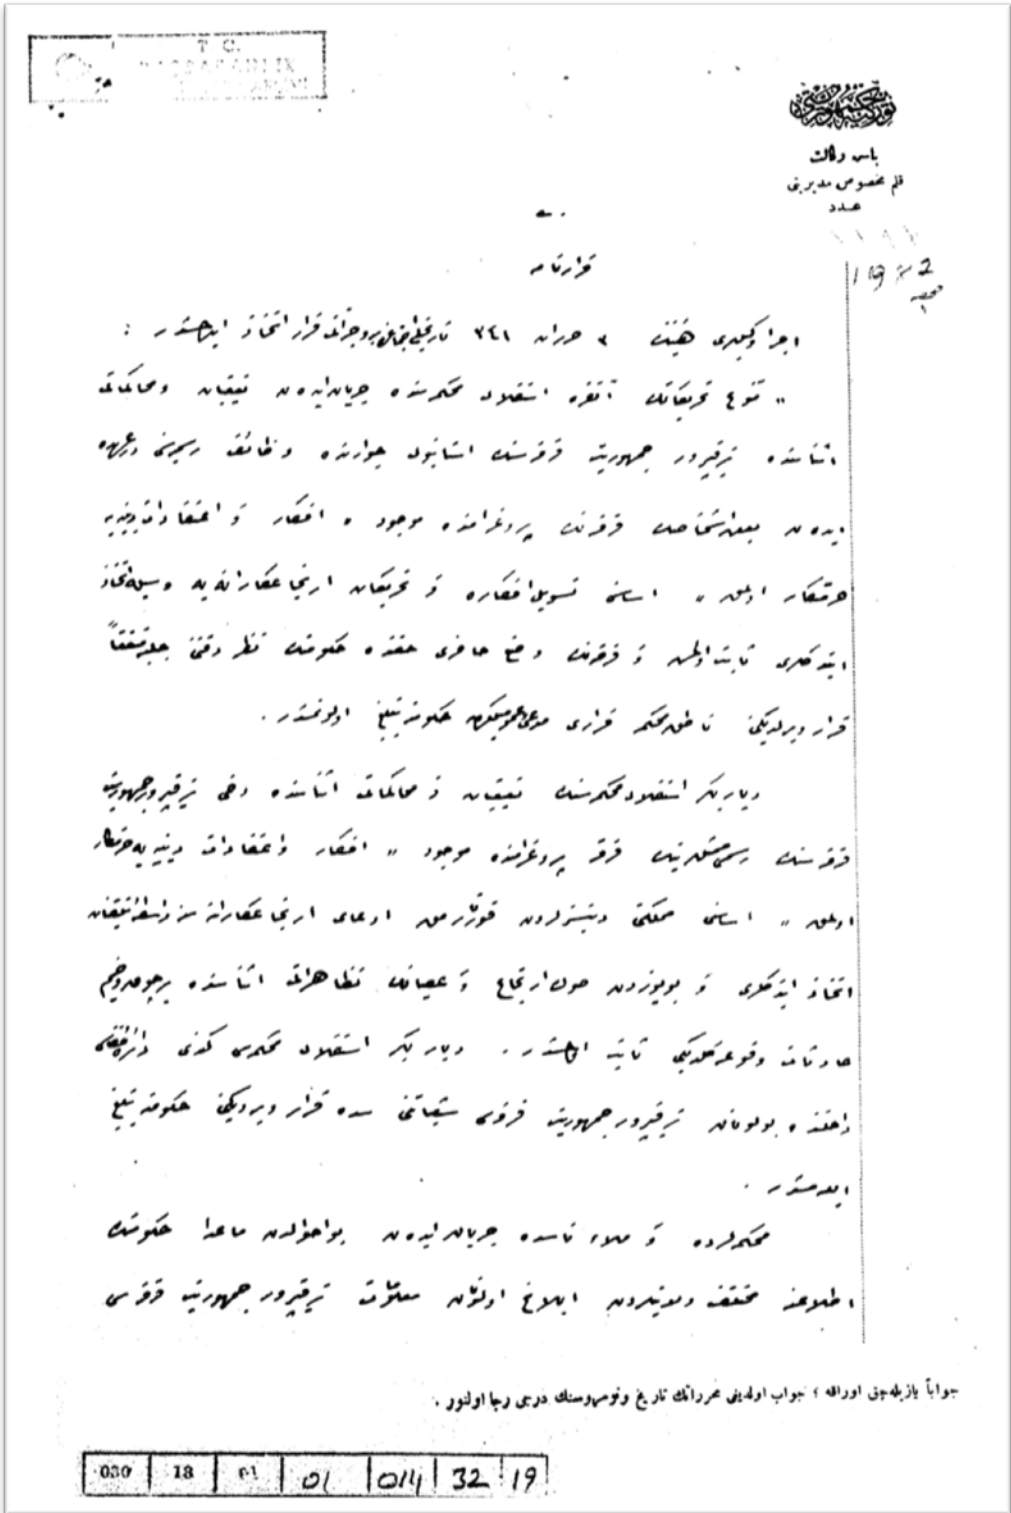 T. C.
BAŞBAKANLIK
تورکیه جمهوریتی
باش وکالت
قلم مخصوص مدیریتی
عدد
1982
قرارنامه
اجرا وکیللری هیئتنك ٣ حزیران ٣٤١ تاریخلی اجتماعنده بروجه آتی قرار اتخاذ ایدلمشدر :
" متنوع تحریکاتك آنقره استقلال محکمه سنده جریان ایدن تعقیبات و محاکماتی
اثناسنده ترقیپرور جمهوریت فرقه سنك استانبول جوارنده وظائف رسمیه سنی درعهده
ایدن بعض اشخاصك فرقه نك پروغرامنده موجود " افکار و اعتقادات دینیه یه
حرمتکار اولمق " اساسنی تسویل افکاره و تحریکات ارتجاعکارانه یه وسیله اتخاذ
ایتدکلری ثابت اولمش و فرقه نك وضع حاضری حقنده حکومتك نظر دقتنی جلبه متفقاً
قرار ویرلدیکنی ناطق محکمه قراری مدعی عمومیلکدن حکومته تبلیغ اولونمشدر .
دیاربکر استقلال محکمه سنك تعقیبات و محاکماتی اثناسنده دخی ترقیپرور جمهوریت
فرقه سنك رسمی ممثللرینك فرقه پروغرامنده موجود " افکار و اعتقادات دینیه یه حرمتکار
اولمق " اساسنی مملکتی دینسزلردن قورتارمق ادعای ارتجاعکارانه سنه واسطه تلقینات
اتخاذ ایتدکلری و بو یوزدن صوك ارتجاع و عصیانك تظاهراتی اثناسنده بر چوق وخیم
حادثات وقوعه کلدیکی ثابت اولمشدر . دیاربکر استقلال محکمه سی کندی دائرهٔ قضاسی
داخلنده بولونان ترقیپرور جمهوریت فرقه سی شعباتنی سده قرار ویردیکنی حکومته تبلیغ
ایلمشدر .
محکمه لرده و ملأ ناسده جریان ایدن بو احوالدن ماعدا حکومتك
اطلاعنه مختلف ولایتلردن ابلاغ اولونان معلومات ترقیپرور جمهوریت فرقه سی
جواباً یازیله جق اوراقه ؛ جواب اولدیغی محرراتك تاریخ و نومروسنك درجی رجا اولنور .
030 18 01 01 014 32 19